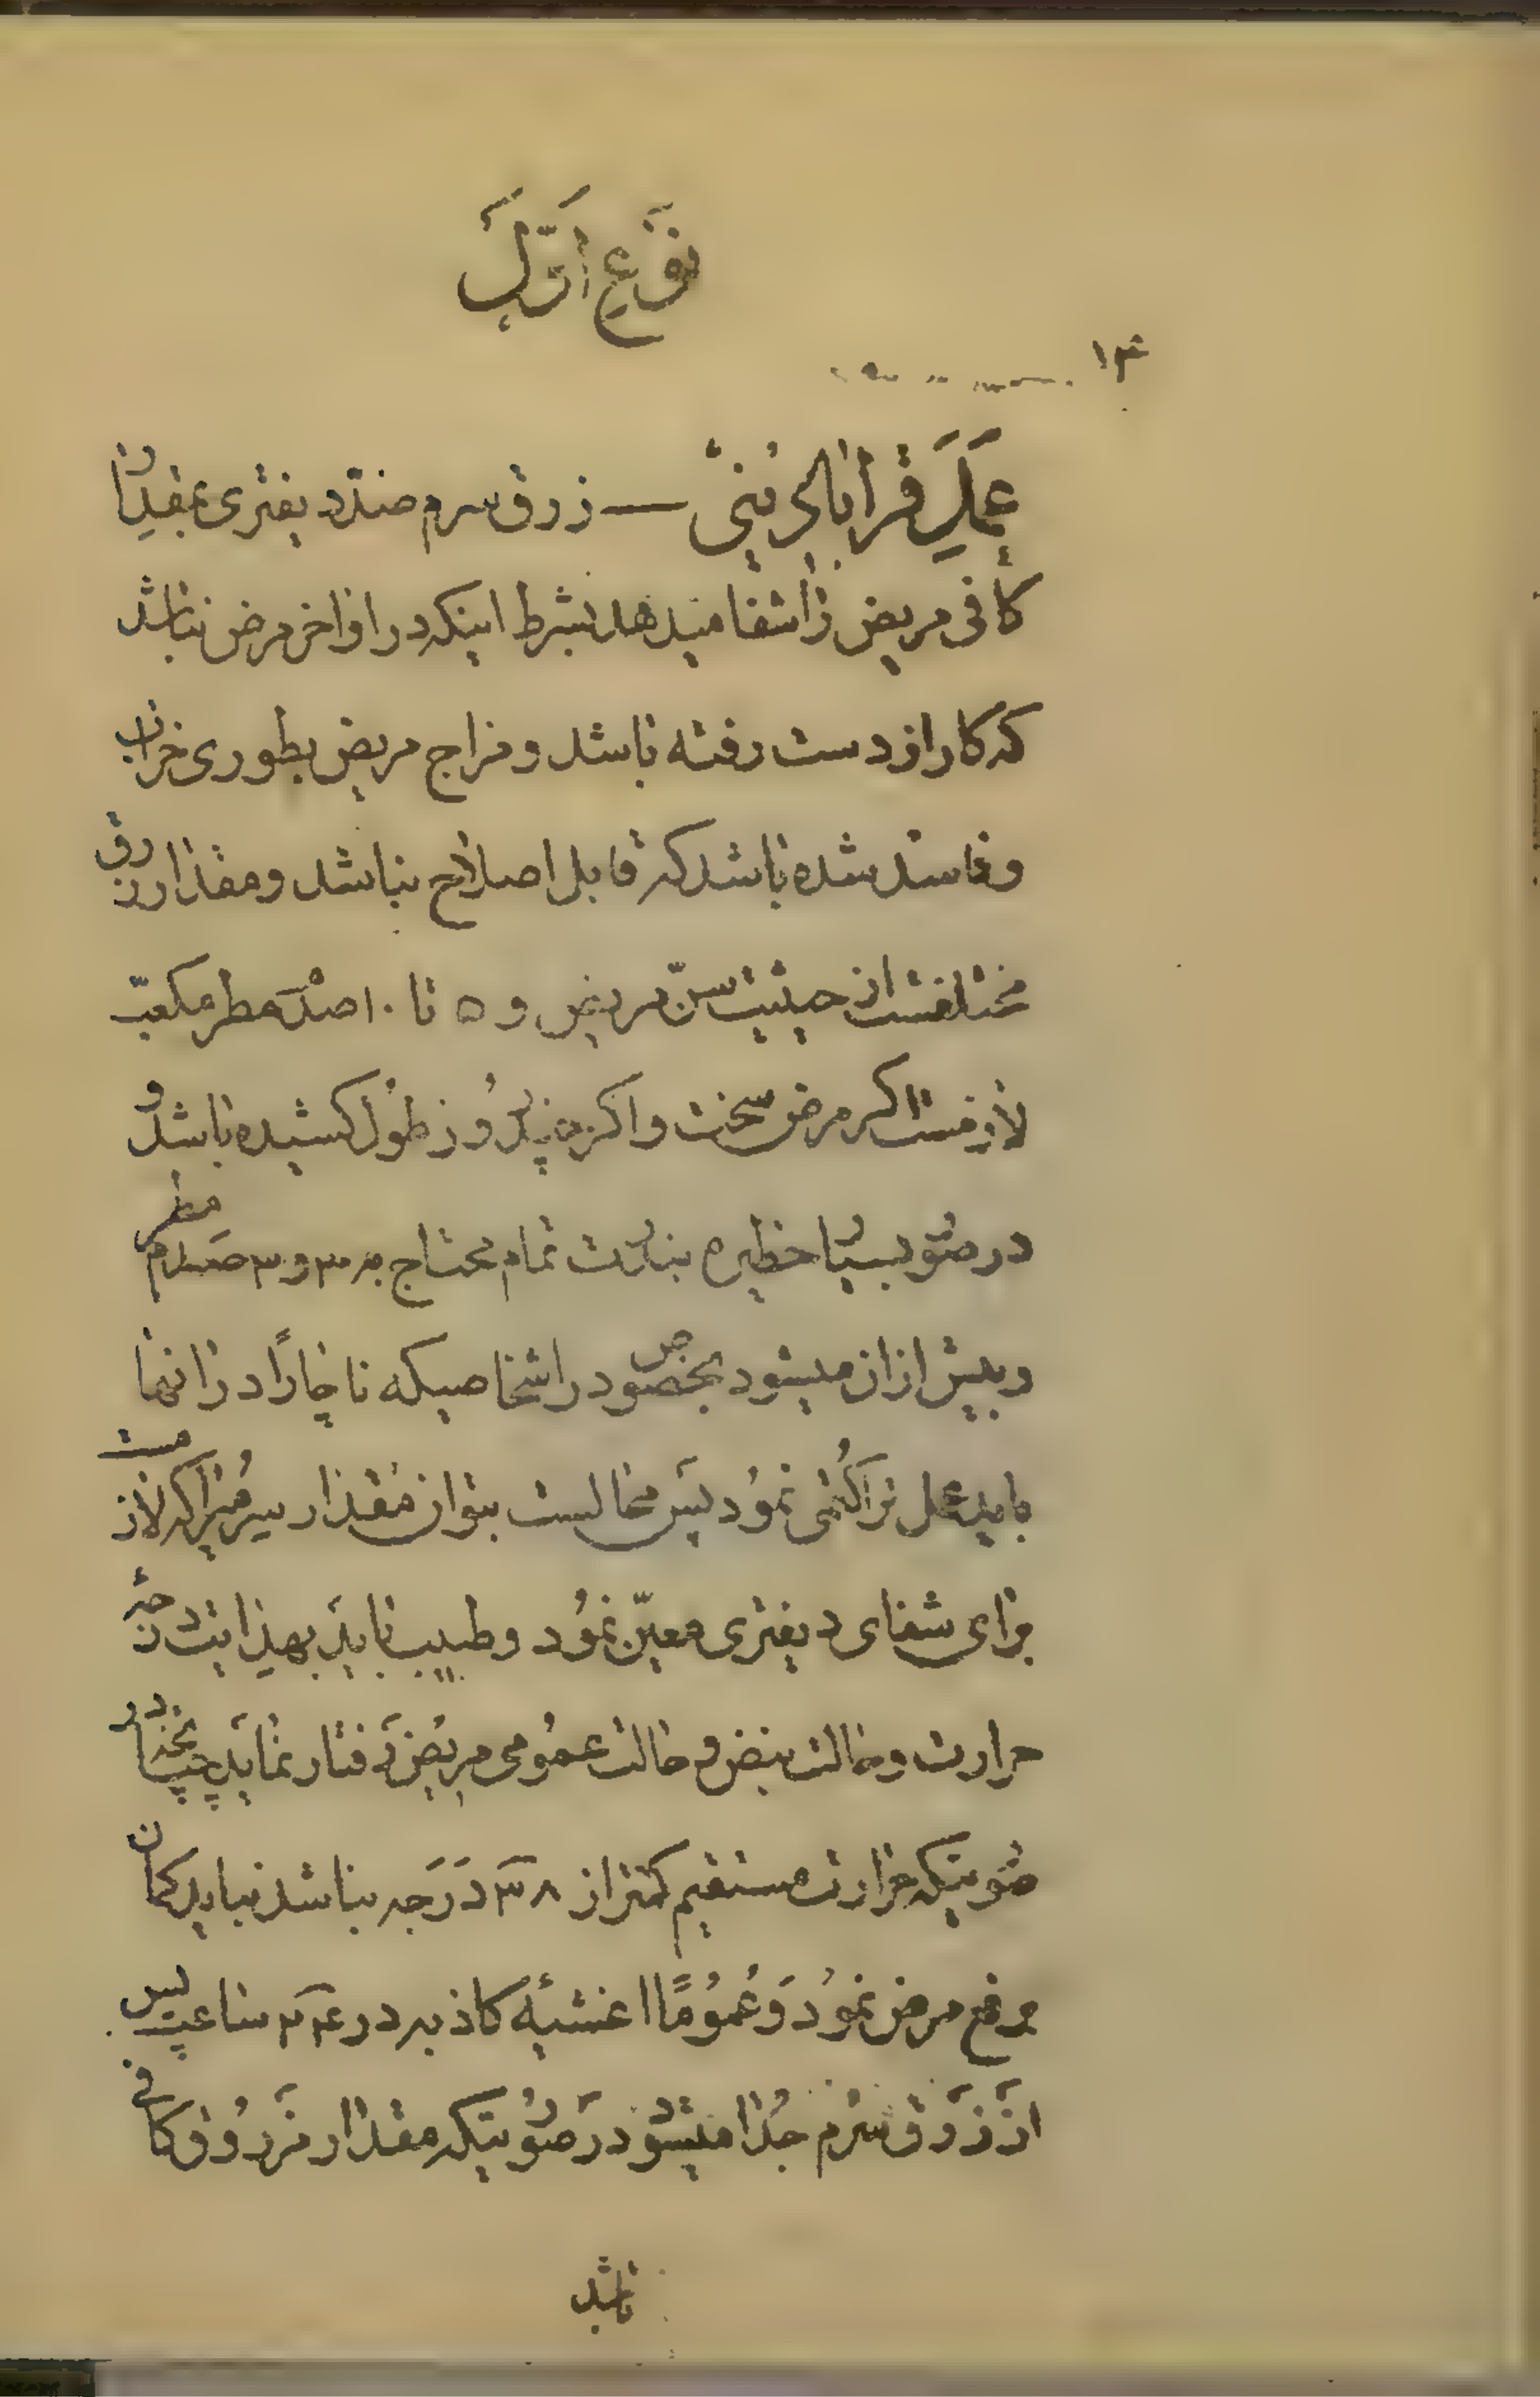 نوع اوّل
۱۴
عمل قرابادینی — زرق سرم ضد دیفتری بمقدار
کافی مریض را شفا میدهد بشرط اینکه در اواخر مرض نباشد
که کار از دست رفته باشد و مزاج مریض بطوری خراب
و فاسد شده باشد که قابل اصلاح نباشد و مقدار زرق
مختلفست از حیثیت سنّ مریض و ۵ تا ۱۰ صدم مطر مکعب
لازمست اگر مرض سخت و اگر چند روز طول کشیده باشد و
در صورت بسیار خطیره بندرت تمام محتاج به ۲۰ و ۳۰ صدم مطر
و بیش از ان میشود بخصوص در اشخاصیکه ناچارًا در انها
باید عمل تراکتمی نمود پس محالست بتوان مقدار سرمیرا که لازمست
برای شفای دیفتری معیّن نمود و طبیب باید بهدایت درجهٔ
حرارت و حالت نبض و حالت عمومی مریض رفتار نماید چنانچه در
صورتیکه حرارت مستقیم کمتر از ۳۸ درجه نباشد نباید گمان
برفع مرض نمود و عمومًا اغشیهٔ کاذبه در ۲۴ ساعت پس
از زرق سرم جدا میشود در صورتیکه مقدار مزروق کافی
باشد